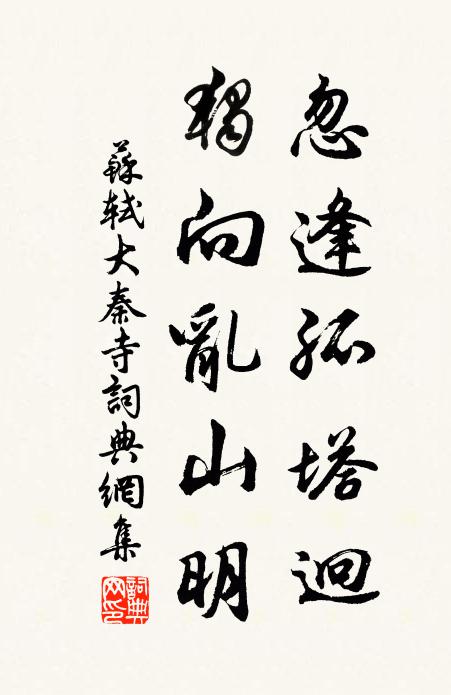 忽逢孤塔迥
獨向亂山明
蘇軾大秦寺詞典網集
詞典
网印